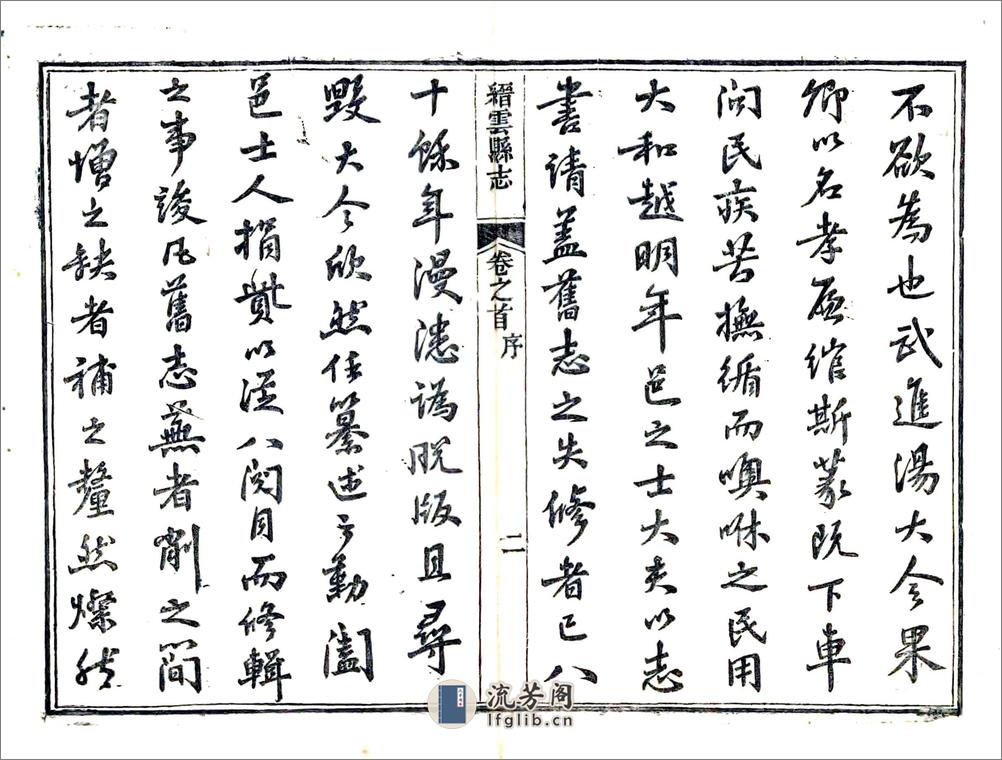 不欲為也武進湯大令果
卿以名孝廉綰斯篆既下車
問民疾苦撫循而噢咻之民用
大和越明年邑之士大夫以志
書請蓋舊志之失修者已八
縉雲縣志
卷之首 序
二
十餘年漫漶譌脫版且尋
毀大令欣然任纂述之勤闔
邑士人捐貲以從八閱月而修輯
之事竣凡舊志蕪者削之簡
者增之缺者補之釐然燦然
流芳阁
lfglib.cn